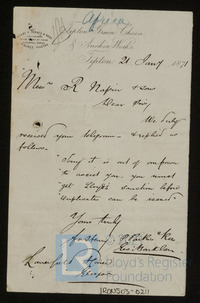 Africa
Tipton Green Chain
& Anchor Works
Tipton, 21 Jany 1871
Mess R Napier & Sons
Dear Sirs,
We duly
received your telegram & replied as
follows.
"Sorry it is out of our power
to assist you. you must
get Lloyd's sanction before
duplicates can be issued
Yours truly
Lancefield House
Glasgow
Lloyd's Register
Foundation
IRON503-0211